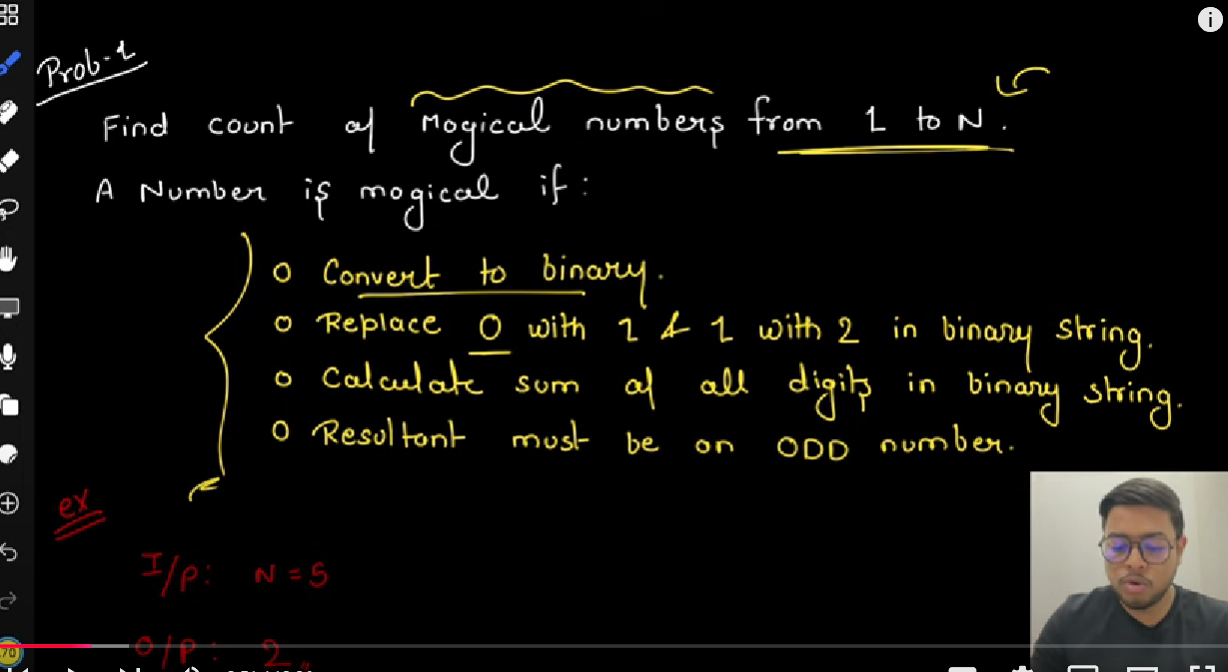 Prob-1
Find count of Magical numbers from 1 to N.
A Number is magical if:
o Convert to binary.
o Replace 0 with 1 & 1 with 2 in binary string.
o Calculate sum of all digits in binary string.
o Resultant must be an ODD number.
ex
I/p: N = 5
O/p: 2